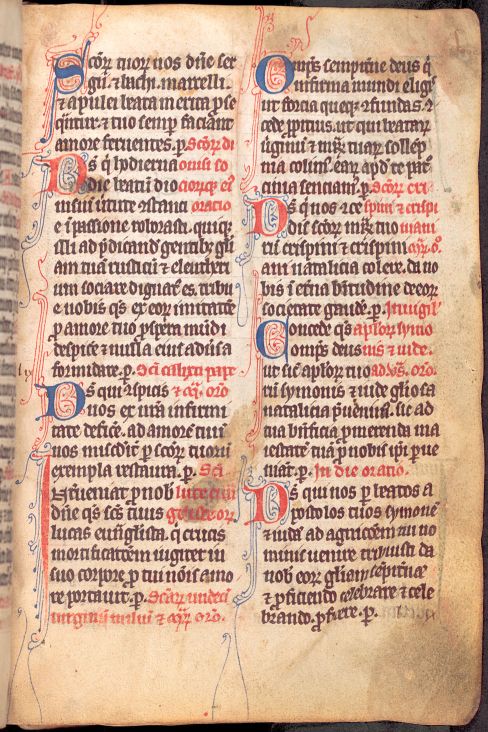 Scōꝝ tuoꝝ nos dn̄e ser
gii ⁊ bachi. marcelli.
⁊ apulei beata merita ꝓse
q̄ntur. ⁊ tuo semꝑ faciant
amore feruentes. p. Scōꝝ di
Ds̄ q̇ hodierna onisii so
die beatū dio cioꝝqꝫ eiꝰ
nisiū uirtute ꝯstanci oratio
e ī passione roborasti. quiqꝫ
illi ad p̄dicand' gentibꝫ gl̄i
am tuā rusticū ⁊ eleutheri
um sociare dignatꝰ es. tribu
e nobis qs̄ eoꝝ imitatōe
ꝑ amore tuo ꝓspera mūdi
despice' ⁊ nulla eiꝰ aduˀsa
formidare. p. Sc̄i calixti pape
Ds̄ qui ꝯspicis ⁊ orō
nos ex nr̄a infirmi
tate defice'. ad amorē tuū
nos ꝑ scōꝝ tuoꝝ
exempla restaura. p. Sc̄i
Interueniat ꝓ nob' luce
dn̄e qs̄ sc̄s tuus
lucas euāglista. q̇ crucis
mortificatōem iugiter in
suo corpore ꝓ tui nōis amo
re portauit. p. Scāꝝ undeci
uirginū miliū ⁊ orō.
Omp̄s sempit'ne deus q̇
infirma mundi eligis
ut forcia queqꝫ ꝯfundas. ꝯ
cede ꝓpitius. ut qui beataꝝ
uginū ⁊ tuaꝝ sollēp
nia colimꝰ. eaꝝ apd' te pat̊
cinia senciamꝰ. p. Scōꝝ cri
Ds̄ q̇ nos ꝯce spini ⁊ crispi
dis scōꝝ tuo niani
crispini ⁊ crispini o̊.
ani natalicia colere. da no
bis ī et'na b̄titudine de eoꝝ
societate gaudē. p. In uigil'
Concede qs̄ aploꝝ symo
omp̄s deus nis ⁊ iude.
ut sic aploꝝ tuo orō.
symonis ⁊ iude gl̄iosa
natalicia p̄uenimꝰ. sic ad
tua b̄nficia ꝓmerenda ma
iestatē tuā ꝓ nobis ip̄i p̄ue
niāt. p. In die oratio.
Ds̄ qui nos ꝑ beatos a
postolos tuos symonē
⁊ iudā ad agnicōem tui no
minis uenire tribuisti da
nob' eoꝝ gl̄iam sempit'nā
⁊ ꝓficiendo celebrare ⁊ cele
brando ꝓficere. p.